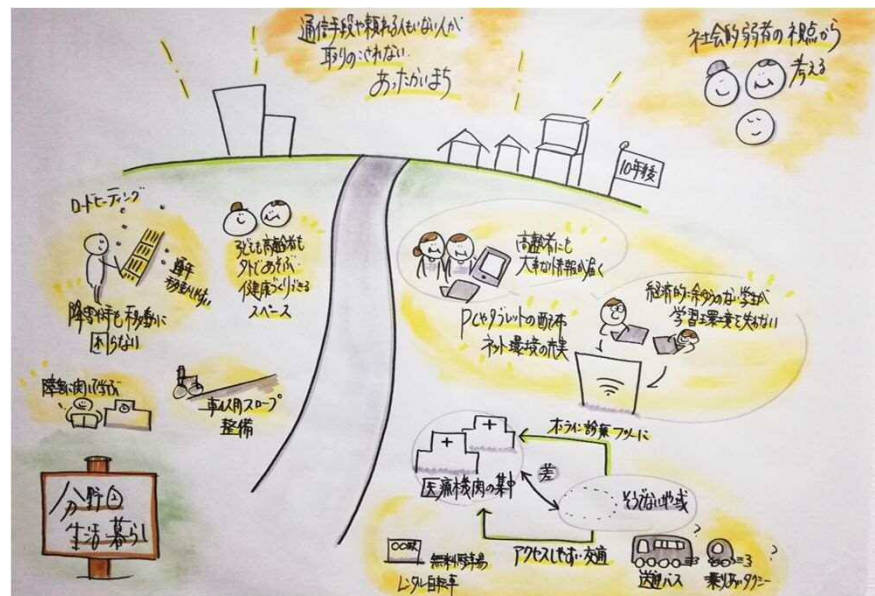 通信手段や頼れる人もいない人が
取りのこされない
あったかいまち
社会的弱者の視点から
考える
10年後
ロードヒーティング
通年
移動しやすい
障害や老も移動に
困らない
子ども高齢者も
外であそぶ
健康づくりできる
スペース
障害に関して学ぶ
車イス用スロープ
整備
分野①
生活暮らし
高齢者にも
大事な情報が届く
PCやタブレットの配布
ネット環境の充実
経済的に余裕のない学生が
学習環境を失わない
オンライン診療フリーに
医療機関の集中
差
そうでない地域
アクセスしやすい交通
〇〇駅
無料駐車場
レンタル自転車
送迎バス
乗りあいタクシー